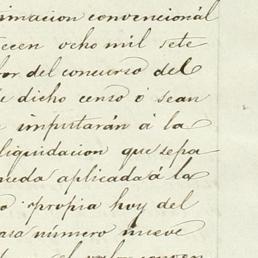 imacion convencional
ecen ocho mil sete
or del concurso del
e dicho censo ó sean
importarán á la
liquidacion que sepa
ueda aplicada á la
propia hoy del
asa número nueve